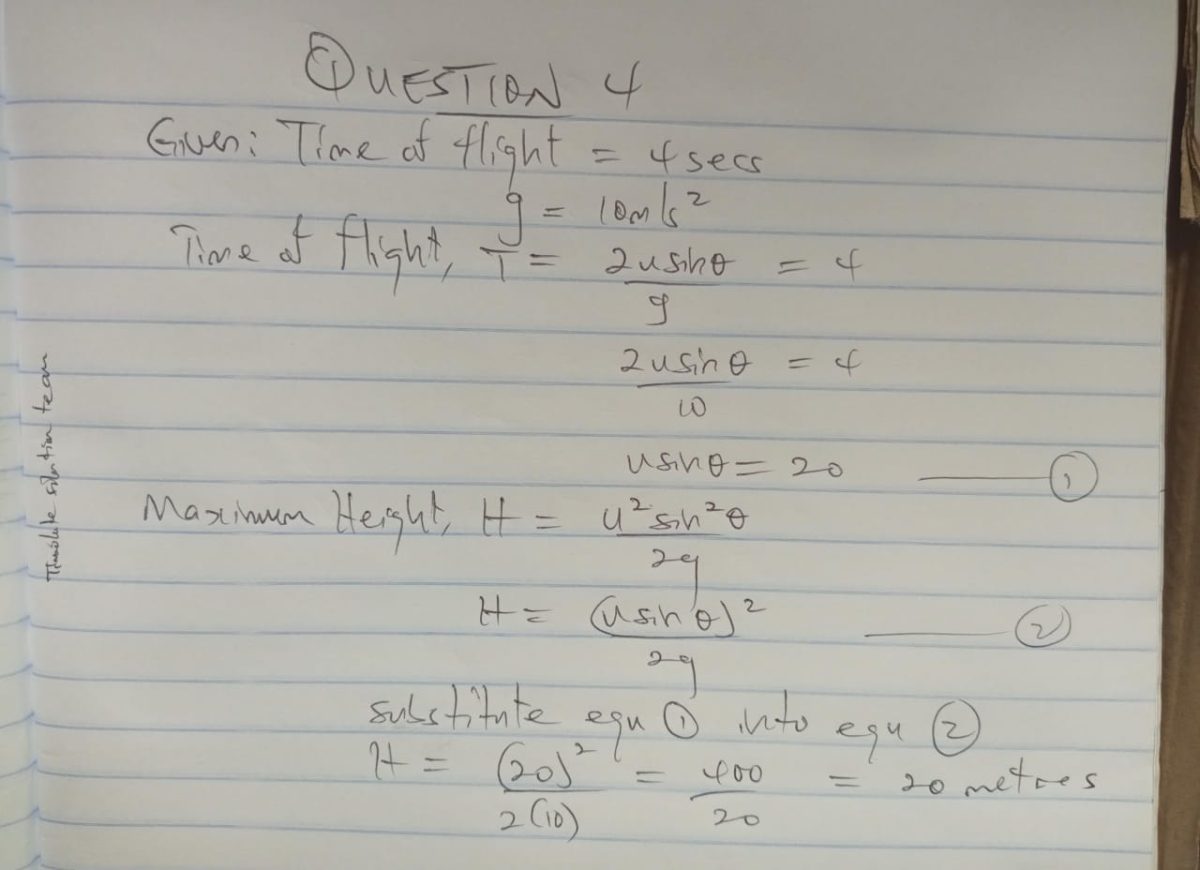 QUESTION 4
Given: Time of flight = 4 secs
g = 10m/s²
Time of flight, T = 2usinθ/g = 4
2usinθ/10 = 4
usinθ = 20 ——— ①
Maximum Height, H = u²sin²θ/2g
H = (usinθ)²/2g ——— ②
substitute equ ① into equ ②
H = (20)²/2(10) = 400/20 = 20 metres
solution team